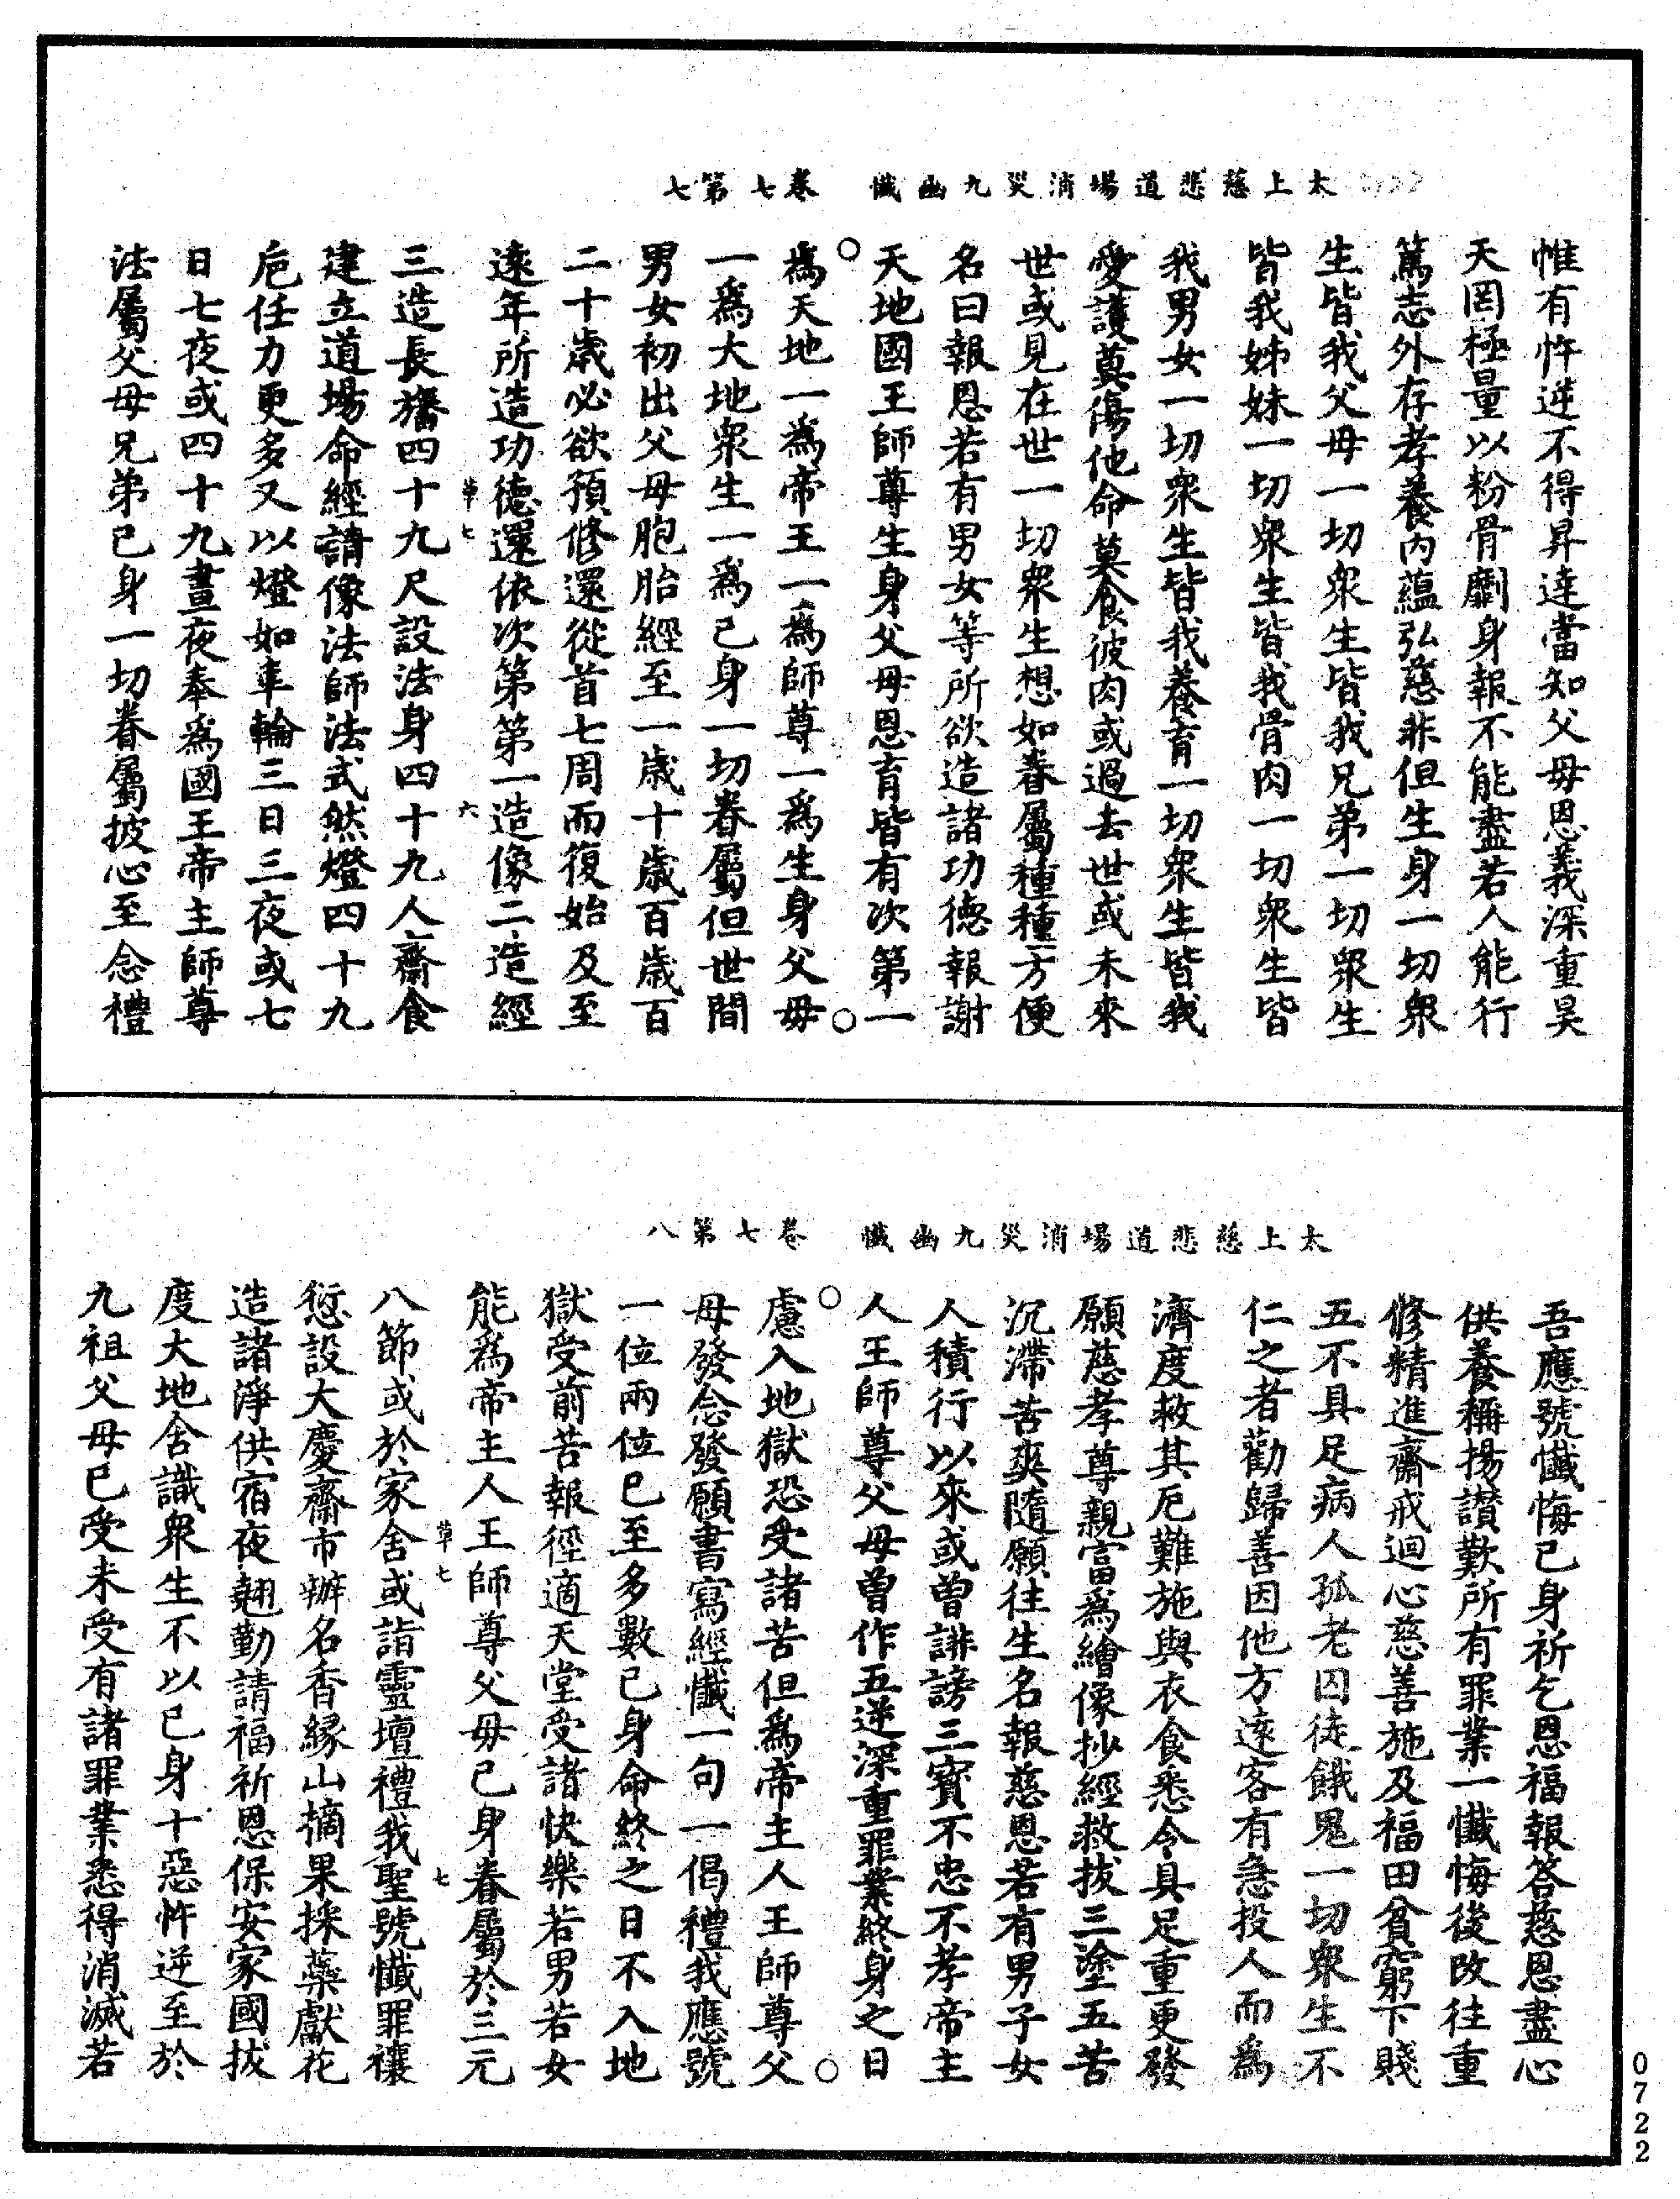 太上慈悲道場消災九幽懺　卷七第七
惟有忤逆不得昇達當知父母恩義深重昊
天罔極量以粉骨劚身報不能盡若人能行
篤志外存孝養內蘊弘慈非但生身一切衆
生皆我父母一切衆生皆我兄弟一切衆生
皆我姊妹一切衆生皆我骨肉一切衆生皆
我男女一切衆生皆我養育一切衆生皆我
愛護莫傷他命莫食彼肉或過去世或未來
世或見在世一切衆生想如眷屬種種方便
名曰報恩若有男女等所欲造諸功德報謝
天地國王師尊生身父母恩育皆有次第一
爲天地一爲帝王一爲師尊一爲生身父母
一爲大地衆生一爲己身一切眷屬但世間
男女初出父母胞胎經至一歲十歲百歲百
二十歲必欲預修還從首七周而復始及至
遠年所造功德還依次第第一造像二造經
草七　六
三造長旛四十九尺設法身四十九人齋食
建立道場命經請像法師法式然燈四十九
巵任力更多又以燈如車輪三日三夜或七
日七夜或四十九晝夜奉爲國王帝主師尊
法屬父母兄弟己身一切眷屬披心至念禮
太上慈悲道場消災九幽懺　卷七第八
吾應號懺悔己身祈乞恩福報答慈恩盡心
供養稱揚讃歎所有罪業一懺悔後改往重
修精進齋戒迴心慈善施及福田貧窮下賤
五不具足病人孤老囚徒餓鬼一切衆生不
仁之者勸歸善因他方遠客有急投人而爲
濟度救其厄難施與衣食悉令具足重更發
願慈孝尊親富爲繪像抄經救拔三塗五苦
沉滯苦爽隨願往生名報慈恩若有男子女
人積行以來或曾誹謗三寳不忠不孝帝主
人王師尊父母曾作五逆深重罪業終身之日
慮入地獄恐受諸苦但爲帝主人王師尊父
母發念發願書寫經懺一句一偈禮我應號
一位兩位已至多數己身命終之日不入地
獄受前苦報徑適天堂受諸快樂若男若女
能爲帝主人王師尊父母己身眷屬於三元
草七　七
八節或於家舍或詣靈壇禮我聖號懺罪禳
愆設大慶齋市辦名香緣山摘果採藥獻花
造諸淨供宿夜翹勤請福祈恩保安家國拔
度大地含識衆生不以己身十惡忤逆至於
九祖父母已受未受有諸罪業悉得消滅若
0722